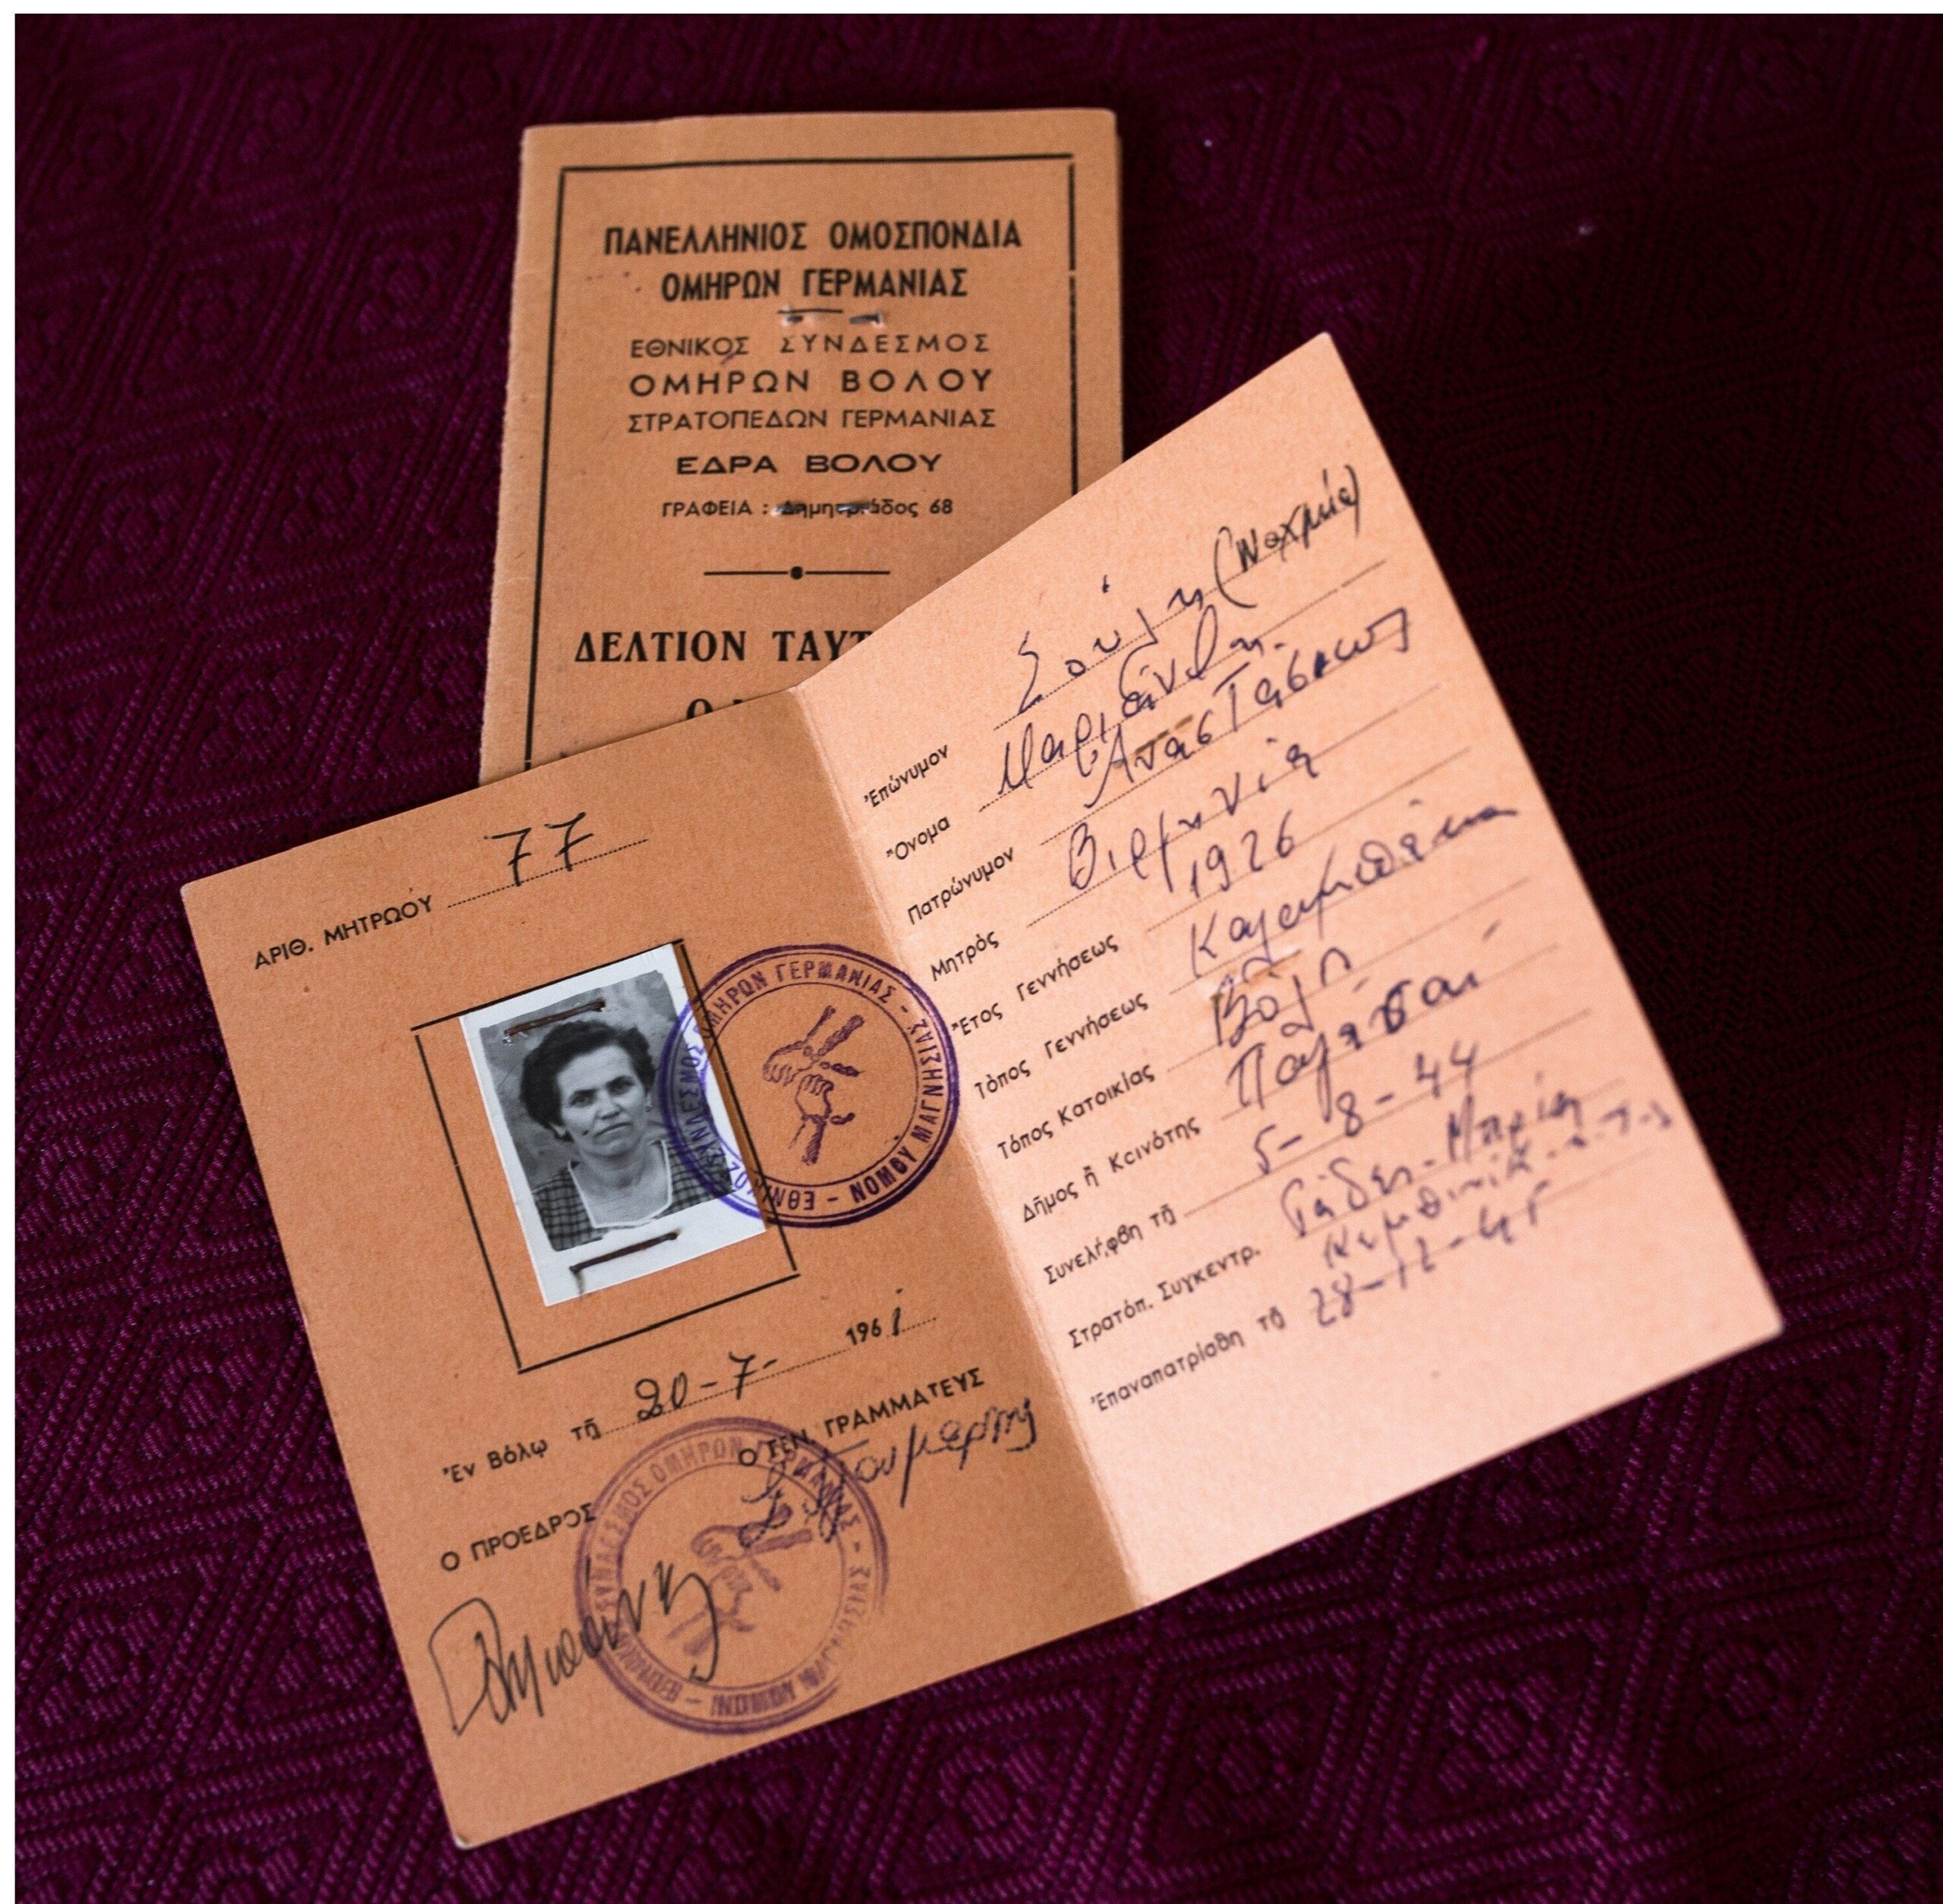 ΠΑΝΕΛΛΗΝΙΟΣ ΟΜΟΣΠΟΝΔΙΑ
ΟΜΗΡΩΝ ΓΕΡΜΑΝΙΑΣ
ΕΘΝΙΚΟΣ ΣΥΝΔΕΣΜΟΣ
ΟΜΗΡΩΝ ΒΟΛΟΥ
ΣΤΡΑΤΟΠΕΔΩΝ ΓΕΡΜΑΝΙΑΣ
ΕΔΡΑ ΒΟΛΟΥ
ΓΡΑΦΕΙΑ : Δημητριάδος 68
ΔΕΛΤΙΟΝ ΤΑΥΤ
ΑΡΙΘ. ΜΗΤΡΩΟΥ 77
ΕΘΝΙΚΟΣ ΣΥΝΔΕΣΜΟΣ ΟΜΗΡΩΝ ΓΕΡΜΑΝΙΑΣ - ΝΟΜΟΥ ΜΑΓΝΗΣΙΑΣ -
Ἐν Βόλῳ τῇ 20-7- 1961
Ο ΠΡΟΕΔΡΟΣ
Ο ΓΕΝ. ΓΡΑΜΜΑΤΕΥΣ
ΣΥΝΔΕΣΜΟΣ ΟΜΗΡΩΝ ΓΕΡΜΑΝΙΑΣ -
Ἐπώνυμον Σούλη
Ὄνομα Μαριάνθη
Πατρώνυμον Ἀναστάσιος
Μητρὸς
Ἔτος Γεννήσεως 1926
Τόπος Γεννήσεως Καλαμπάκα
Τόπος Κατοικίας Βόλο
Δῆμος ἢ Κοινότης
Συνελήφθη τῇ 5-8-44
Στρατόπ. Συγκεντρ.
Ἐπαναπατρίσθη τῇ 28-12-45